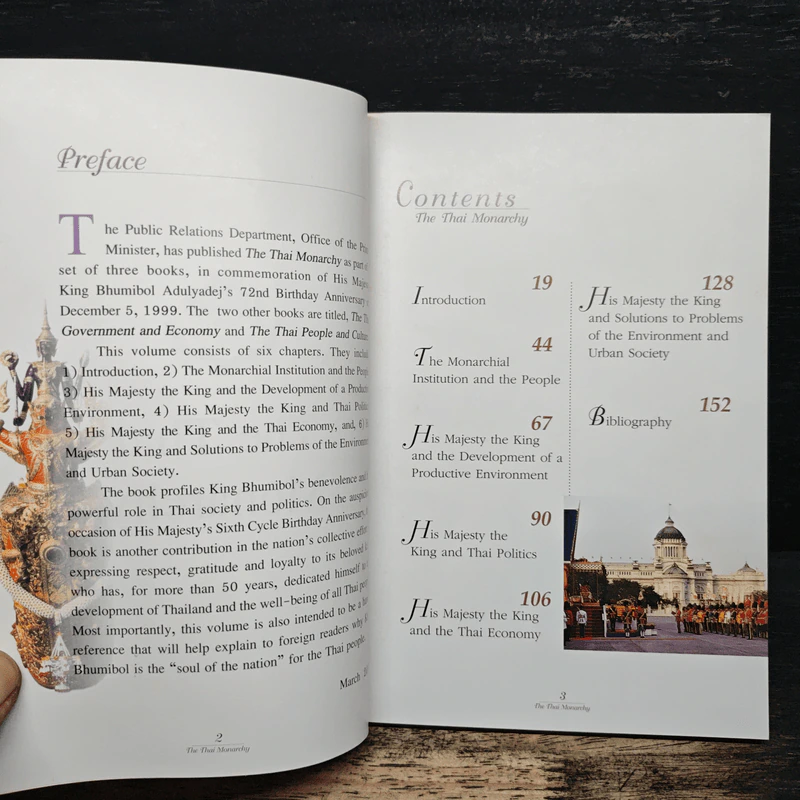 Preface
The Public Relations Department, Office of the
Minister, has published The Thai Monarchy as part
set of three books, in commemoration of His
King Bhumibol Adulyadej's 72nd Birthday Anniversary
December 5, 1999. The two other books are titled,
Government and Economy and The Thai People and
This volume consists of six chapters. They
1) Introduction, 2) The Monarchial Institution and the
3) His Majesty the King and the Development of a
Environment, 4) His Majesty the King and Thai
5) His Majesty the King and the Thai Economy, and, 6)
Majesty the King and Solutions to Problems of the
and Urban Society.
The book profiles King Bhumibol's benevolence
powerful role in Thai society and politics. On the
occasion of His Majesty's Sixth Cycle Birthday Anniversary,
book is another contribution in the nation's collective
expressing respect, gratitude and loyalty to its beloved
who has, for more than 50 years, dedicated himself
development of Thailand and the well-being of all Thai
Most importantly, this volume is also intended to be a
reference that will help explain to foreign readers why
Bhumibol is the "soul of the nation" for the Thai people.
March
2
The Thai Monarchy
Contents
The Thai Monarchy
19
Introduction
44
The Monarchial
Institution and the People
67
His Majesty the King
and the Development of a
Productive Environment
90
His Majesty the
King and Thai Politics
106
His Majesty the King
and the Thai Economy
128
His Majesty the King
and Solutions to Problems
of the Environment and
Urban Society
152
Bibliography
3
The Thai Monarchy